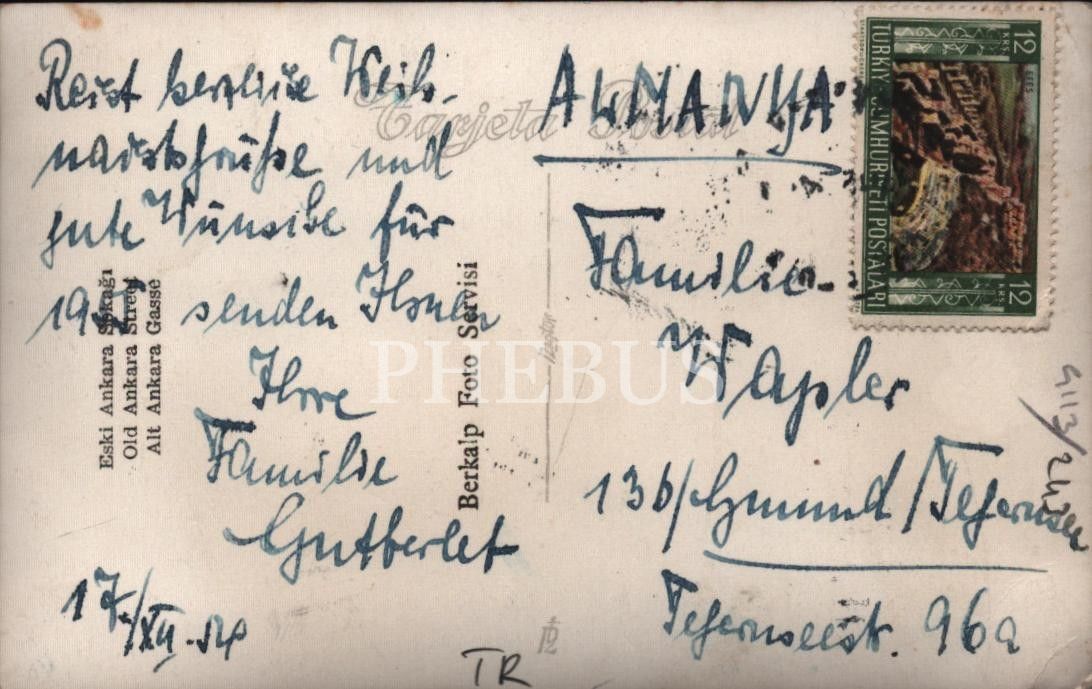 Reist herzliche Weih-
nachtsgrüße und
gute Wünsche für
senden Ihnen
Ihre
Familie
Gutberlet
17/XII.54
Eski Ankara Sokağı
Old Ankara Street
Alt Ankara Gasse
Berkalp Foto Servisi
Tarjeta Postal
ALMANYA
Familie
Wapler
13b/Gmund/Tegernsee
Tegernseestr. 96a
TÜRKİYE CUMHURİYETİ POSTALARI
12 KRŞ
12 KRŞ
EFES
TR
PHEBUS